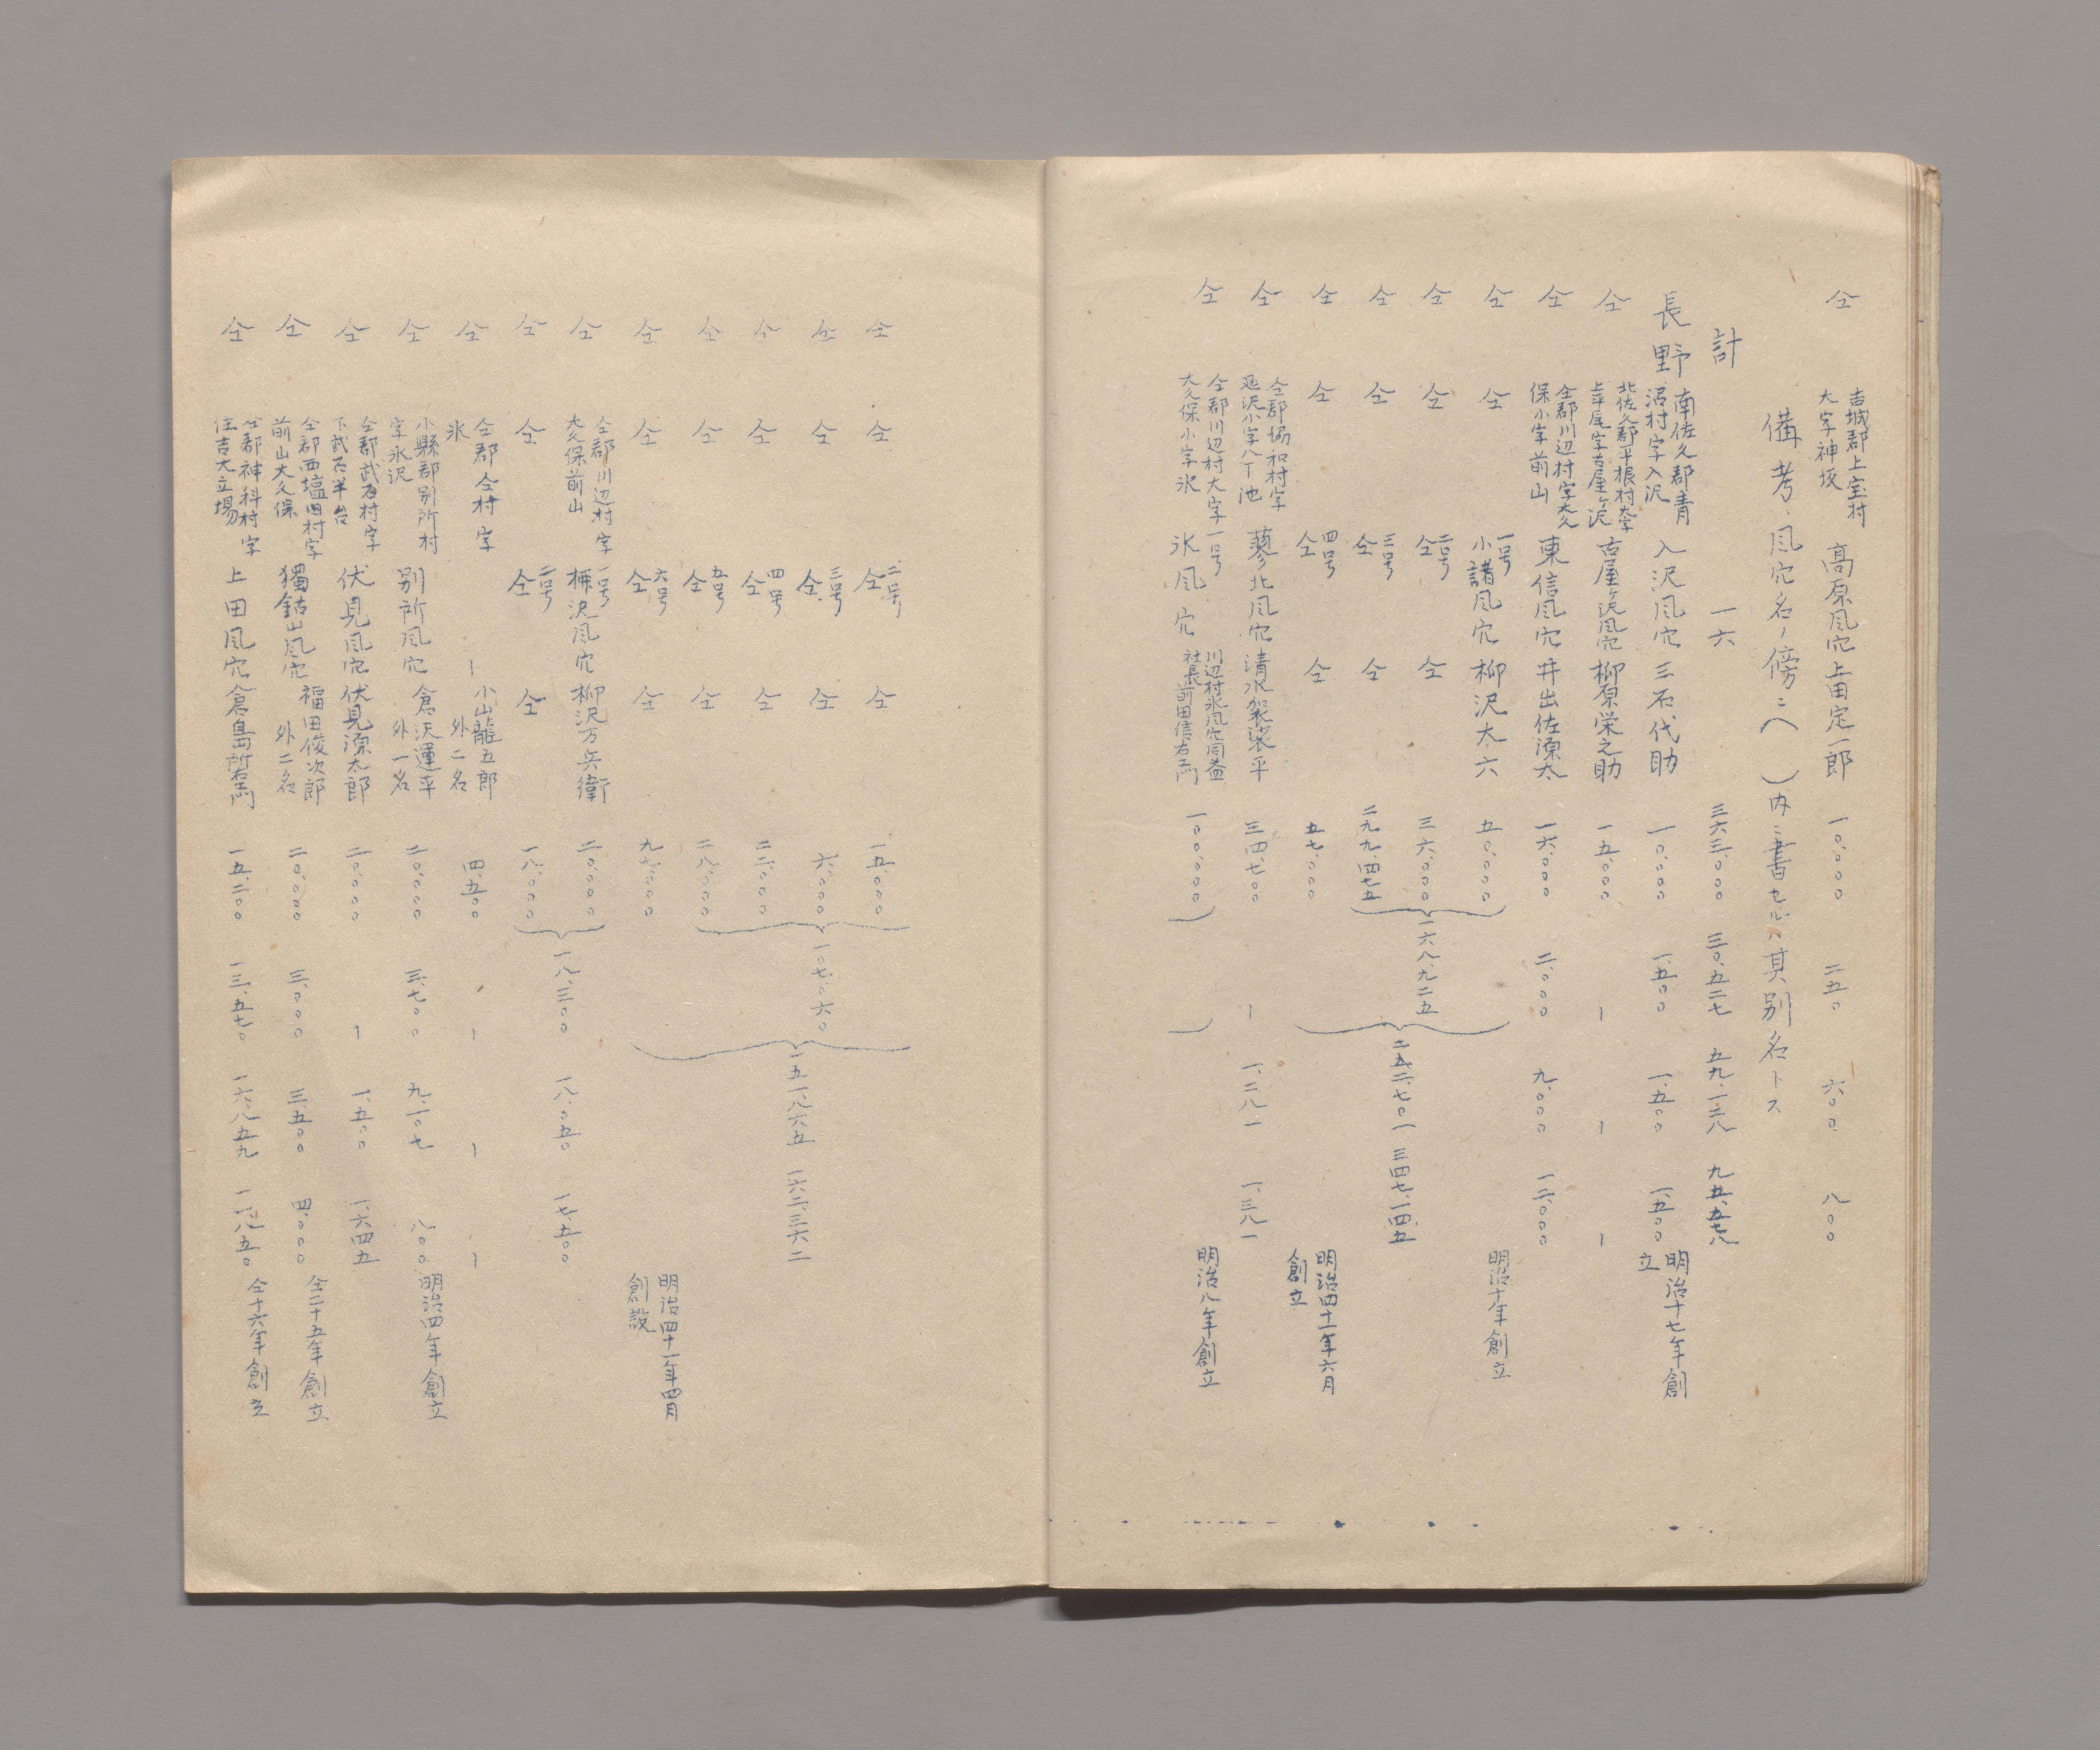 仝 吉城郡上宝村大字神坂 高原風穴 上田定一郎 一〇、〇〇〇 二五〇 六〇〇 八〇〇
備考、風穴名ノ傍ニ( )内ニ書セルハ其別名トス
計 一六 三六三、〇〇〇 三〇、五二七 五九、一三八 九五、五七八
長野 南佐久郡青沼村字入沢 入沢風穴 三石代助 一〇、〇〇〇 一、五〇〇 一、五〇〇 一、五〇〇 明治十七年創立
仝 北佐久郡平根村大字上平尾字古屋ヶ沢 古屋ヶ沢風穴 柳原栄之助 一五、〇〇〇 ー ー ー
仝 仝郡川辺村字大久保小字前山 東信風穴 井出佐源太 一六、〇〇〇 二、〇〇〇 九、〇〇〇 一二、〇〇〇
仝 仝 一号小諸風穴 柳沢太六 五〇、〇〇〇 明治十年創立
仝 仝 二号仝 仝 三六、〇〇〇 一六八、九二五
仝 仝 三号仝 仝 二九九、四七五 二五二、七〇一 三四七、一四五
仝 仝 四号仝 仝 五七、〇〇〇 明治四十一年六月創立
仝 仝郡協和村字延沢小字八丁池 蓼北風穴 清水袈裟平 三四、七〇〇 ー 一、二八一 一、三八一
仝 仝郡川辺村大字大久保小字氷 一号氷風穴 川辺村氷風穴同益社長前田信右エ門 一〇〇、〇〇〇 明治八年創立
仝 仝 二号仝 仝 一五、〇〇〇
仝 仝 三号仝 仝 六、〇〇〇 一〇七、〇六〇
仝 仝 四号仝 仝 二二、〇〇〇 一五一、八六五 一六二、三六二
仝 仝 五号仝 仝 二八、〇〇〇
仝 仝 六号仝 仝 九七、〇〇〇 明治四十一年四月創設
仝 仝郡川辺村字大久保前山 一号栁沢風穴 柳沢万兵衛 二〇、〇〇〇
仝 仝 二号仝 仝 一八、〇〇〇 一八、三〇〇 一八、〇五〇 一七、五〇〇
仝 仝郡仝村字氷 ー 小山龍五郎外二名 四、五〇〇 ー ー ー
仝 小縣郡別所村字氷沢 別所風穴 倉沢運平外一名 二〇、〇〇〇 三、七〇〇 九、一〇七 八〇〇 明治四年創立
仝 仝郡武石村字下武石半台 伏見風穴 伏見源太郎 二〇、〇〇〇 ー 一、五〇〇 一、六四五
仝 仝郡西塩田村字前山大久保 獨鈷山風穴 福田俊次郎外二名 二〇、〇〇〇 三、〇〇〇 三、五〇〇 四、〇〇〇 仝二十五年創立
仝 仝郡神科村字住吉大立場 上田風穴 倉島所右エ門 一五、二〇〇 一三、五七〇 一六、八五九 一一、八五〇 仝十六年創立